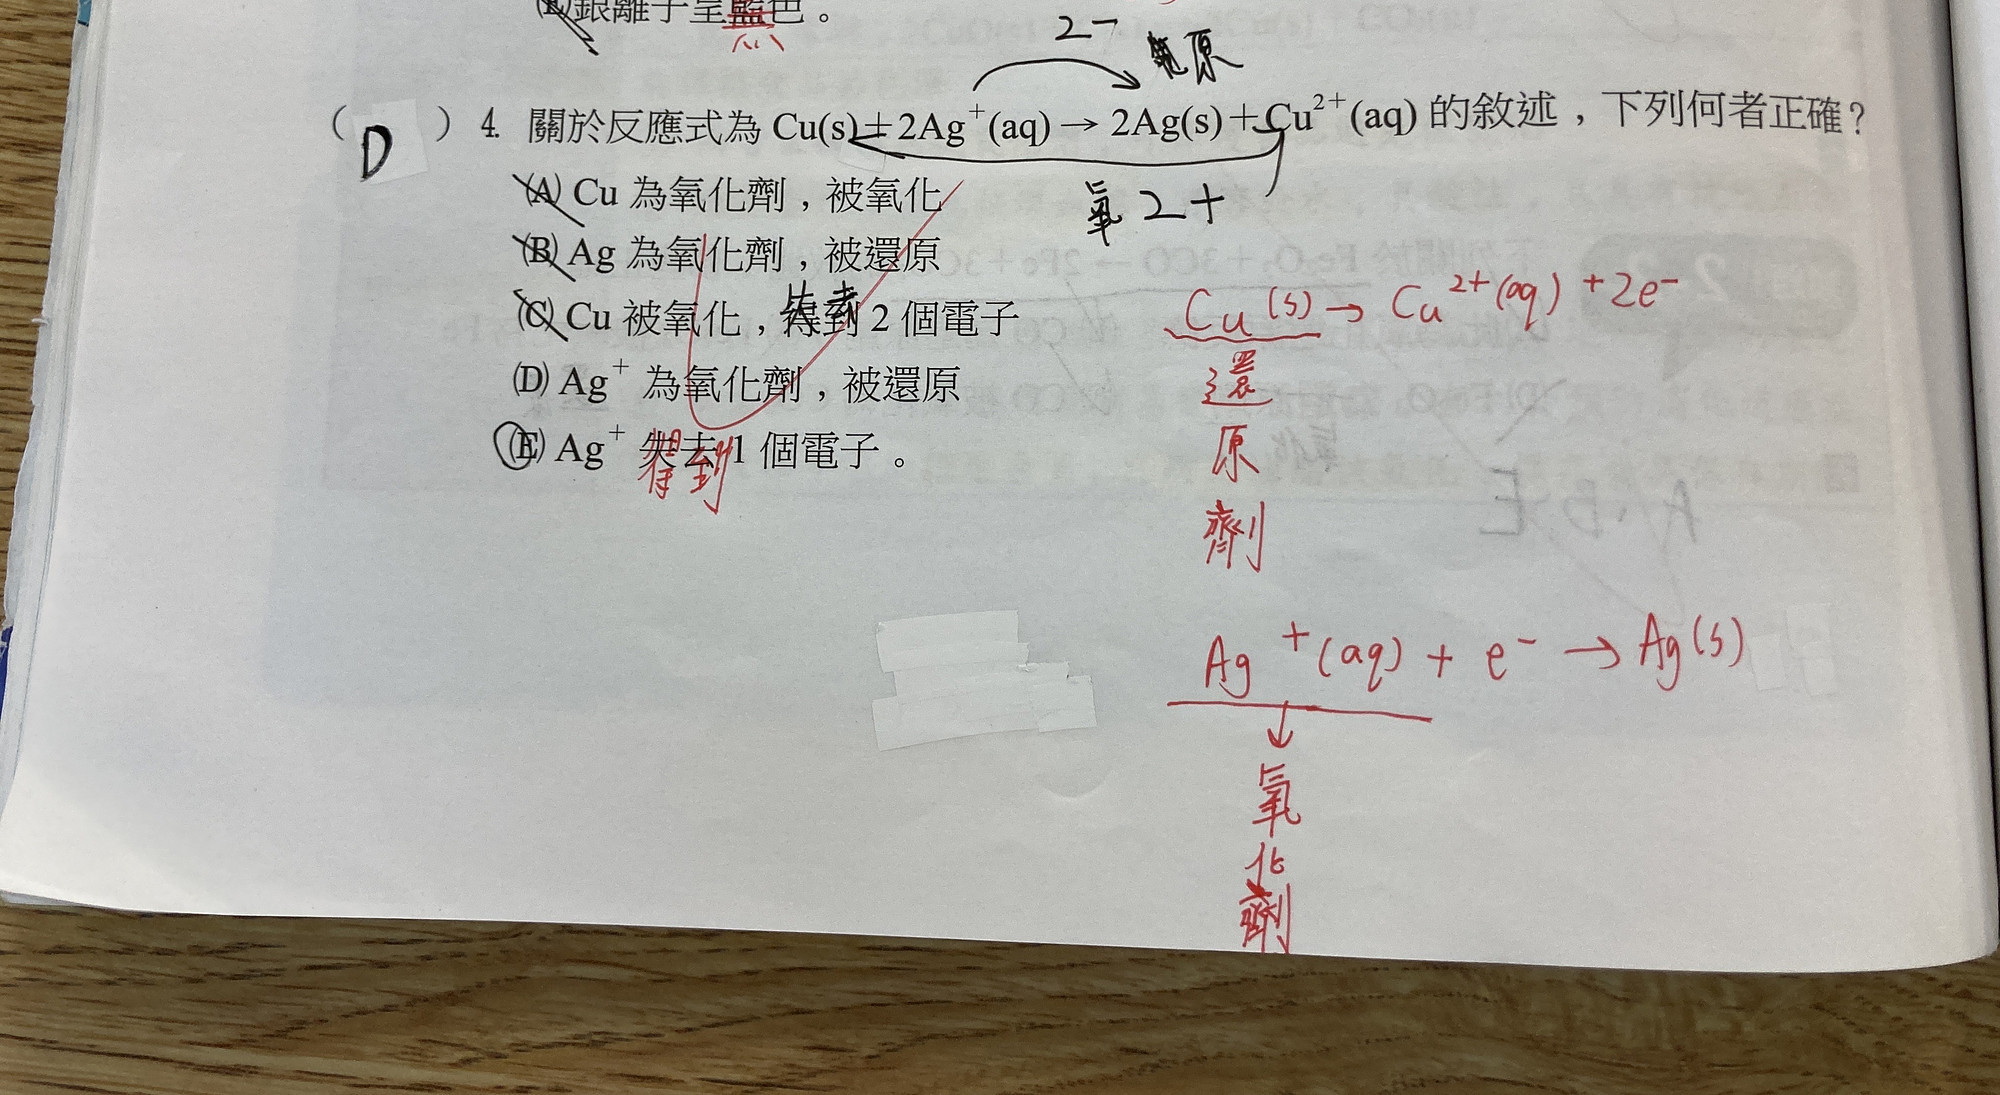 銀離子呈藍色。
無
2-
還原
( D ) 4. 關於反應式為 Cu(s)+2Ag⁺(aq)→2Ag(s)+Cu²⁺(aq) 的敘述，下列何者正確？
(A) Cu 為氧化劑，被氧化
氧 2+
(B) Ag 為氧化劑，被還原
失去
(C) Cu 被氧化，得到 2 個電子
(D) Ag⁺ 為氧化劑，被還原
(E) Ag⁺ 失去 1 個電子。
得到
Cu(s) → Cu²⁺(aq) + 2e⁻
還
原
劑
Ag⁺(aq) + e⁻ → Ag(s)
↓
氧
化
劑